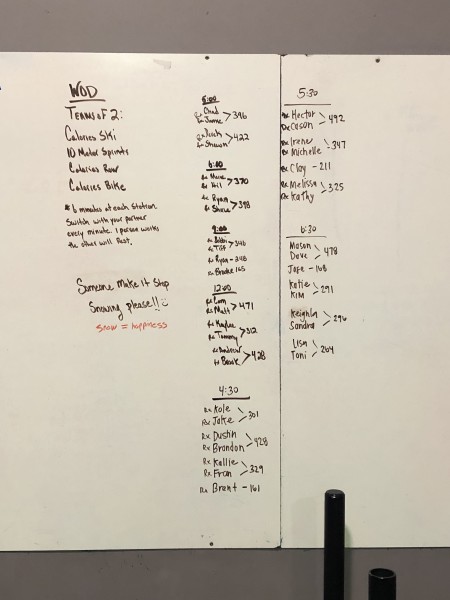 WOD
Teams of 2:
Calories Ski
10 Meter Sprints
Calories Row
Calories Bike
* 6 minutes at each station.
Switch with your partner
every minute. 1 person works
the other will Rest.
Someone Make it Stop
Snowing please!!
Snow = happness
5:00
Chad
Jamie > 396
Shawn > 422
6:00
> 370
Rx Ryan
Rx > 398
9:00
Rx Bobbi
Rx Tiff > 346
Rx Ryan - 248
Rx Brooke 165
12:00
Rx Cam
Rx Matt > 471
Rx Kaylee
Rx Tammy > 312
Rx Andrew
Rx Brook > 428
4:30
Rx Kole
Rx Jake > 301
Rx Dustin
Rx Brandon > 428
Rx Kallie
Rx Fran > 329
Rx Brent - 161
5:30
Rx Hector
Rx Cason > 492
Rx Irene
Rx Michelle > 347
Rx Clay - 211
Rx Melissa
Rx Kathy > 325
6:30
Mason
Dave > 478
Jafe - 168
Katie
Kim > 291
Keighla
Sandra > 296
Lisa
Toni > 264